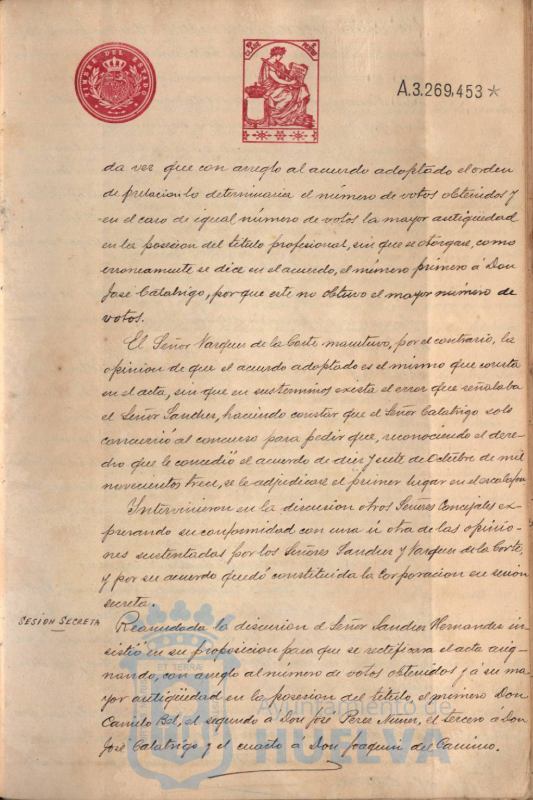 TIMBRE DEL ESTADO
A.3.269,453*
da vez que con arreglo al acuerdo adoptado el orden
de prelacion lo determinaria el número de votos obtenidos y
en el caso de igual número de votos la mayor antigüedad
en la posesion del título profesional, sin que se otorgase, como
erroneamente se dice en el acuerdo, el número primero á Don
José Calatrigo, porque este no obtuvo el mayor número de
votos.
El Señor Vazquez de la Corte mantuvo, por el contrario, la
opinion de que el acuerdo adoptado es el mismo que consta
en el acta, sin que en sus terminos exista el error que señalaba
el Señor Sanchez, haciendo constar que el Señor Calatrigo solo
concurrió al concurso para pedir que, reconociendo el dere-
cho que le concedió el acuerdo de diez y siete de Octubre de mil
novecientos trece, se le adjudicase el primer lugar en el escalafon
Intervinieron en la discusion otros Señores Concejales ex-
presando su conformidad con una ú otra de las opinio-
nes sustentadas por los Señores Sanchez y Vazquez de la Corte,
y por su acuerdo quedó constituida la Corporacion en sesión
secreta.
SESIÓN SECRETA
Reanudada la discusion el Señor Sanchez Hernandez in-
sistió en su proposicion para que se rectificara el acta asig-
nando, con arreglo al número de votos obtenidos y á su ma-
yor antigüedad en la posesion del título, el primero Don
Camilo Bel, el segundo á Don José Perez, el tercero á Don
José Calatrigo y el cuarto á Don Joaquin del Camino.
ET TERRÆ
Ayuntamiento de
HUELVA